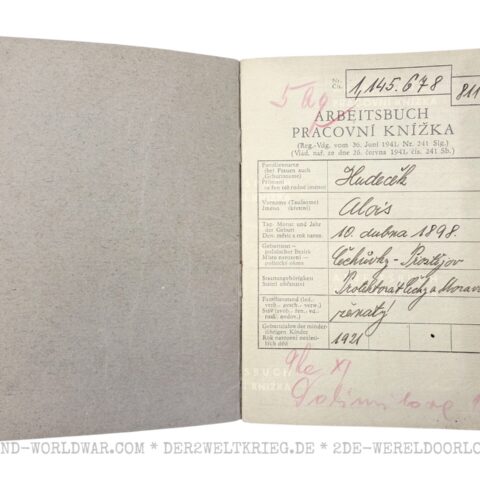 Nr.
Čís.
1,145.678
811
5 Ag
ARBEITSBUCH
PRACOVNÍ KNÍŽKA
(Reg.-Vdg. vom 26. Juni 1941, Nr. 241 Slg.)
(Vlád. nař. ze dne 26. června 1941, čís. 241 Sb.)
Familienname
(bei Frauen auch
Geburtsname)
Příjmení
Hudeček
Vorname (Taufname)
Jméno (křestní)
Alois
Tag, Monat und Jahr
der Geburt
Den, měsíc a rok naroz.
10. dubna 1898.
Geburtsort —
politischer Bezirk
Místo narození —
politický okres
Čechůvky - Prostějov
Staatsangehörigkeit
Státní občanství
Protektorát Čechy a Morava
Familienstand (led.,
verh., gesch., verw.)
Stav (svob., žen., vd.,
rozl., ovdov.)
ženatý
Geburtsjahre der minder-
jährigen Kinder
Rok narození nezleti-
lých dětí
1921
ND-WORLDWAR.COM * DER2WELTKRIEG.DE * 2DE-WERELDOORLO